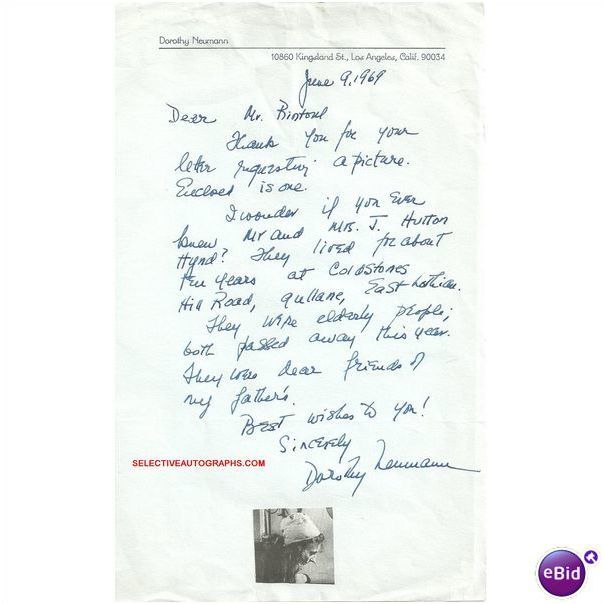 Dorothy Neumann
10860 Kingsland St., Los Angeles, Calif. 90034
June 9, 1969
Dear Mr. Rintoul
Thank you for your
letter requesting a picture.
Enclosed is one.
I wonder if you ever
knew Mr and Mrs. J. Hutton
Hynd? They lived for about
ten years at Coldstones
Hill Road, Gullane, East Lothian.
They were elderly people;
both passed away this year.
They were dear friends of
my father's.
Best wishes to you!
Sincerely
Dorothy Neumann
SELECTIVEAUTOGRAPHS.COM
eBid